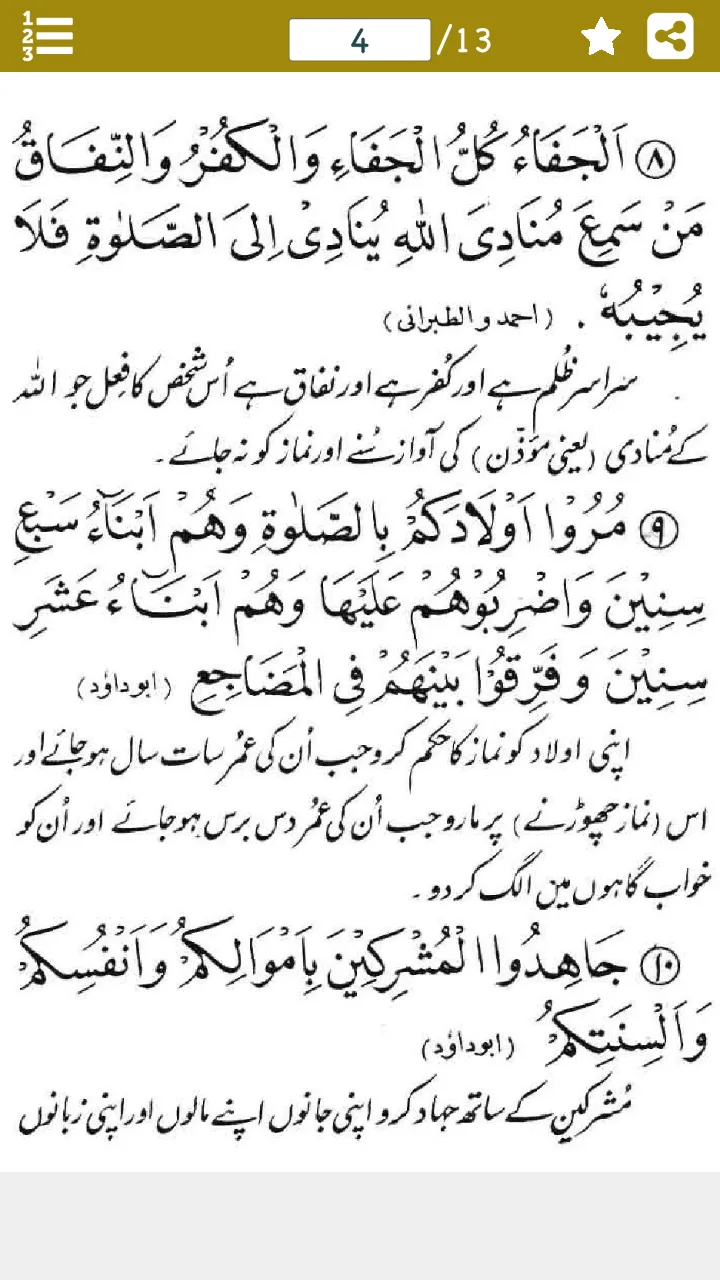 4 /13
۸ اَلْجَفَاءُ كُلُّ الْجَفَاءِ وَالْكُفْرُ وَالنِّفَاقُ
مَنْ سَمِعَ مُنَادِیَ اللهِ يُنَادِیْ اِلَی الصَّلٰوةِ فَلَا
يُجِيْبُهٗ . (احمد والطبرانی)
سراسر ظُلم ہے اور کُفر ہے اور نفاق ہے اُس شخص کا فِعل جو اللہ
کے مُنادی (یعنی موَذّن) کی آواز سُنے اور نماز کو نہ جائے۔
۹ مُرُوْا اَوْلَادَكُمْ بِالصَّلٰوةِ وَهُمْ اَبْنَآءُ سَبْعِ
سِنِيْنَ وَاضْرِبُوْهُمْ عَلَيْهَا وَهُمْ اَبْنَآءُ عَشَرِ
سِنِيْنَ وَفَرِّقُوْا بَيْنَهُمْ فِی الْمَضَاجِعِ (ابوداوٗد)
اپنی اولاد کو نماز کا حکم کرو جب اُن کی عمُر سات سال ہو جائے اور
اس (نماز چھوڑنے) پر مارو جب اُن کی عمُر دس برس ہو جائے اور اُن کو
خواب گاہوں میں الگ کر دو۔
۱۰ جَاهِدُوا الْمُشْرِكِيْنَ بِاَمْوَالِكُمْ وَاَنْفُسِكُمْ
وَاَلْسِنَتِكُمْ (ابوداوٗد)
مُشرکین کے ساتھ جہاد کرو اپنی جانوں اپنے مالوں اور اپنی زبانوں